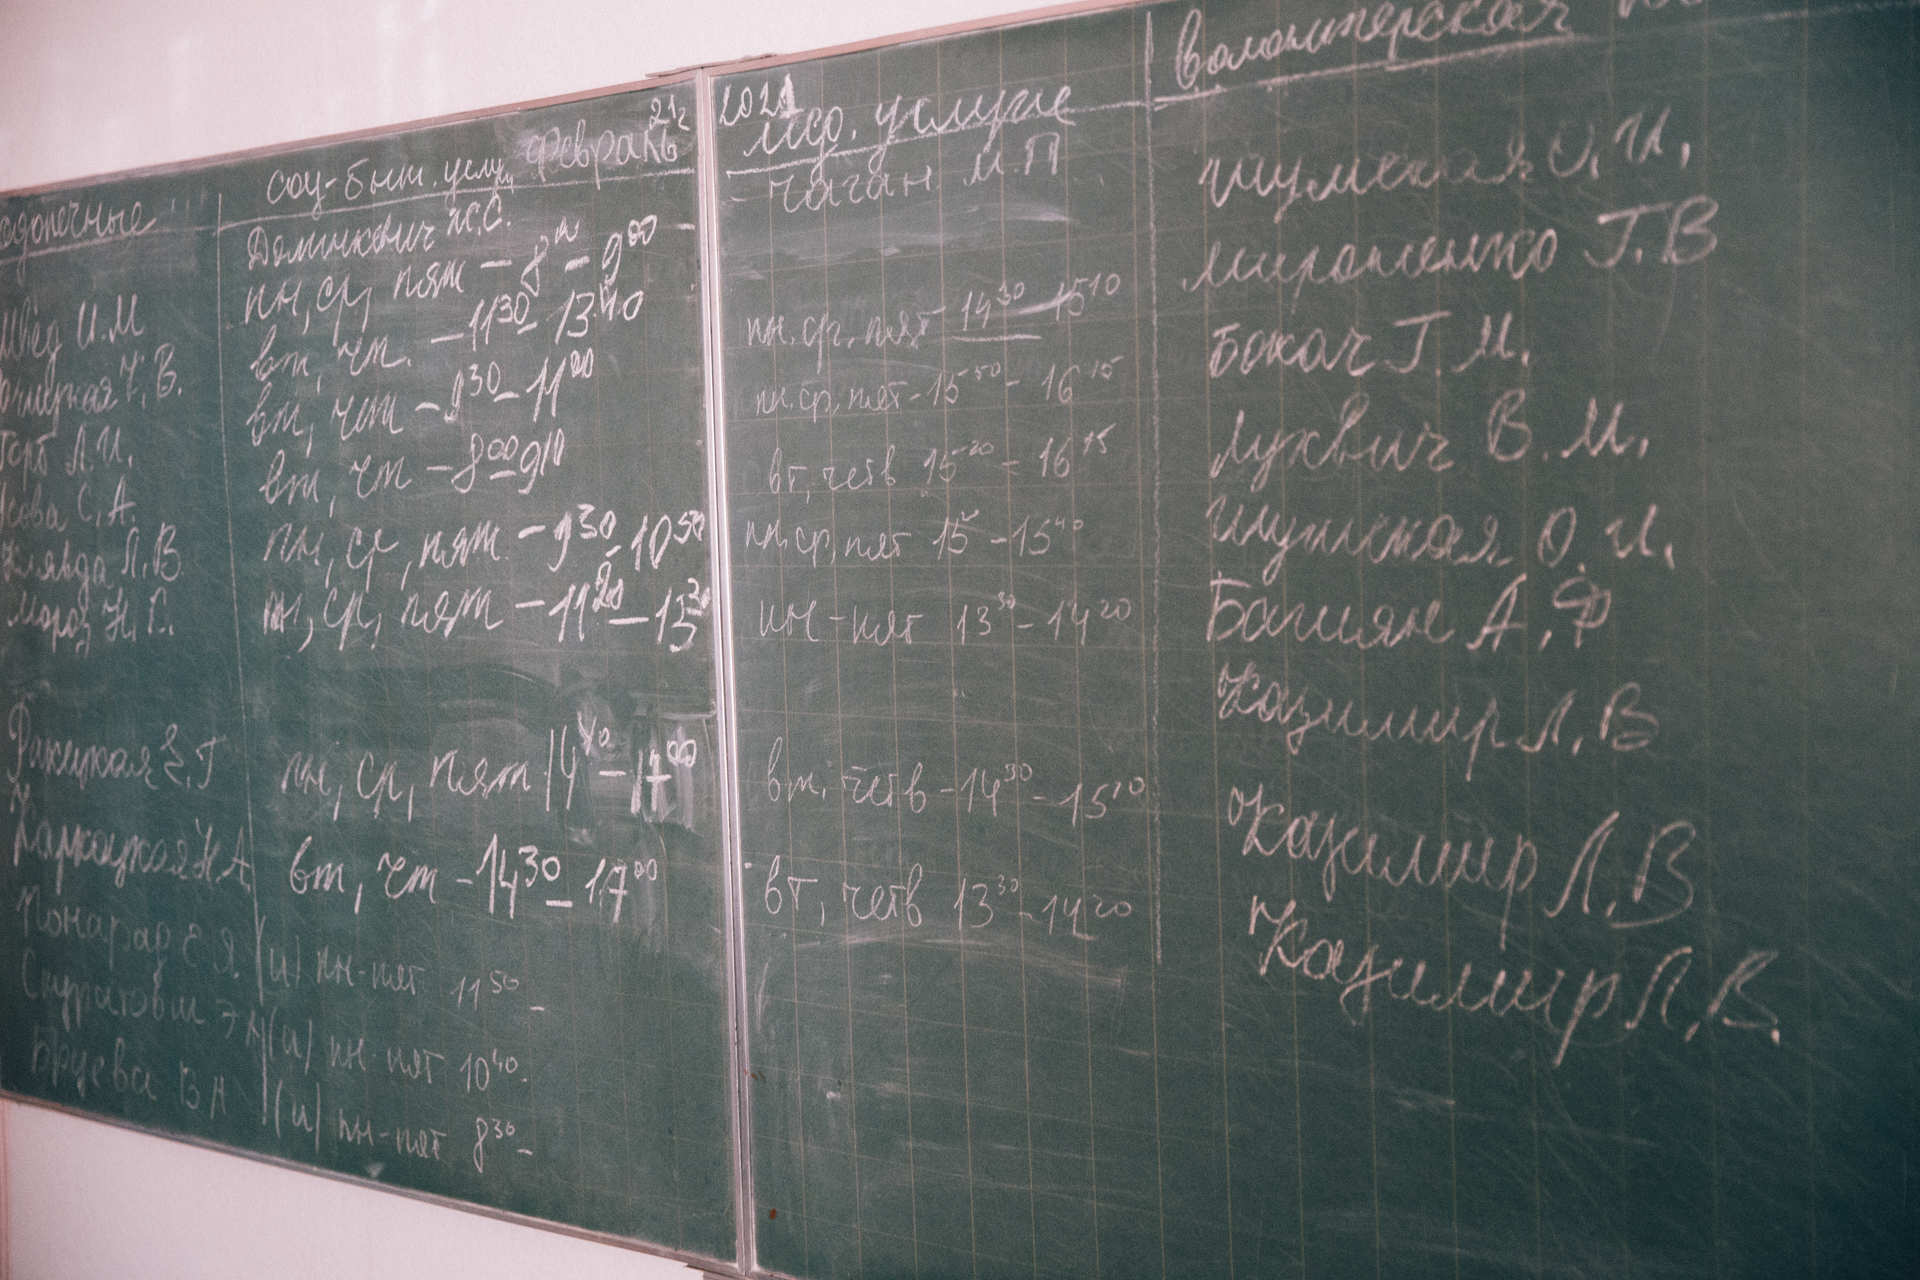 2021
21г
соц-быт. услуг Февраль
мед. услуги
волонтерская
одопечные
Доминкевич М.С.
Чаган М.П
Швед И.М
пн, ср, пят - 8 - 9 00
Шумская О.И.
вт, чт. - 11 30 - 13 40
пн. ср, пят - 14 30 - 15 10
Мироненко Т.В
Горб Л.И.
вт, чт - 9 30 - 11 00
пн. ср, пят - 15 50 - 16 15
Бокач Г.М.
С.А.
вт, чт - 8 00 - 9
вт, четв 15 20 - 16 15
Лукевич В.М.
Л.В.
пн, ср, пят. - 9 30 - 10 50
пн, ср, пят 15 - 15 40
Шумская О.И.
Мороз Н.Г.
пн, ср, пят - 11 20 - 13 30
пн - пят 13 30 - 14 20
Башян А.Ф
Казимир Л.В
Е.Г
пн, ср, пят 14 40 - 17 00
вт, четв - 14 30 - 15 10
Казимир Л.В
Н.А.
вт, чт - 14 30 - 17 00
вт, четв 13 30 - 14 20
Казимир Л.В.
Понарад Е Я. (и) пн-пят 11 50 -
(и) пн-пят 10 40 -
Бруева В А (и) пн-пят 8 30 -